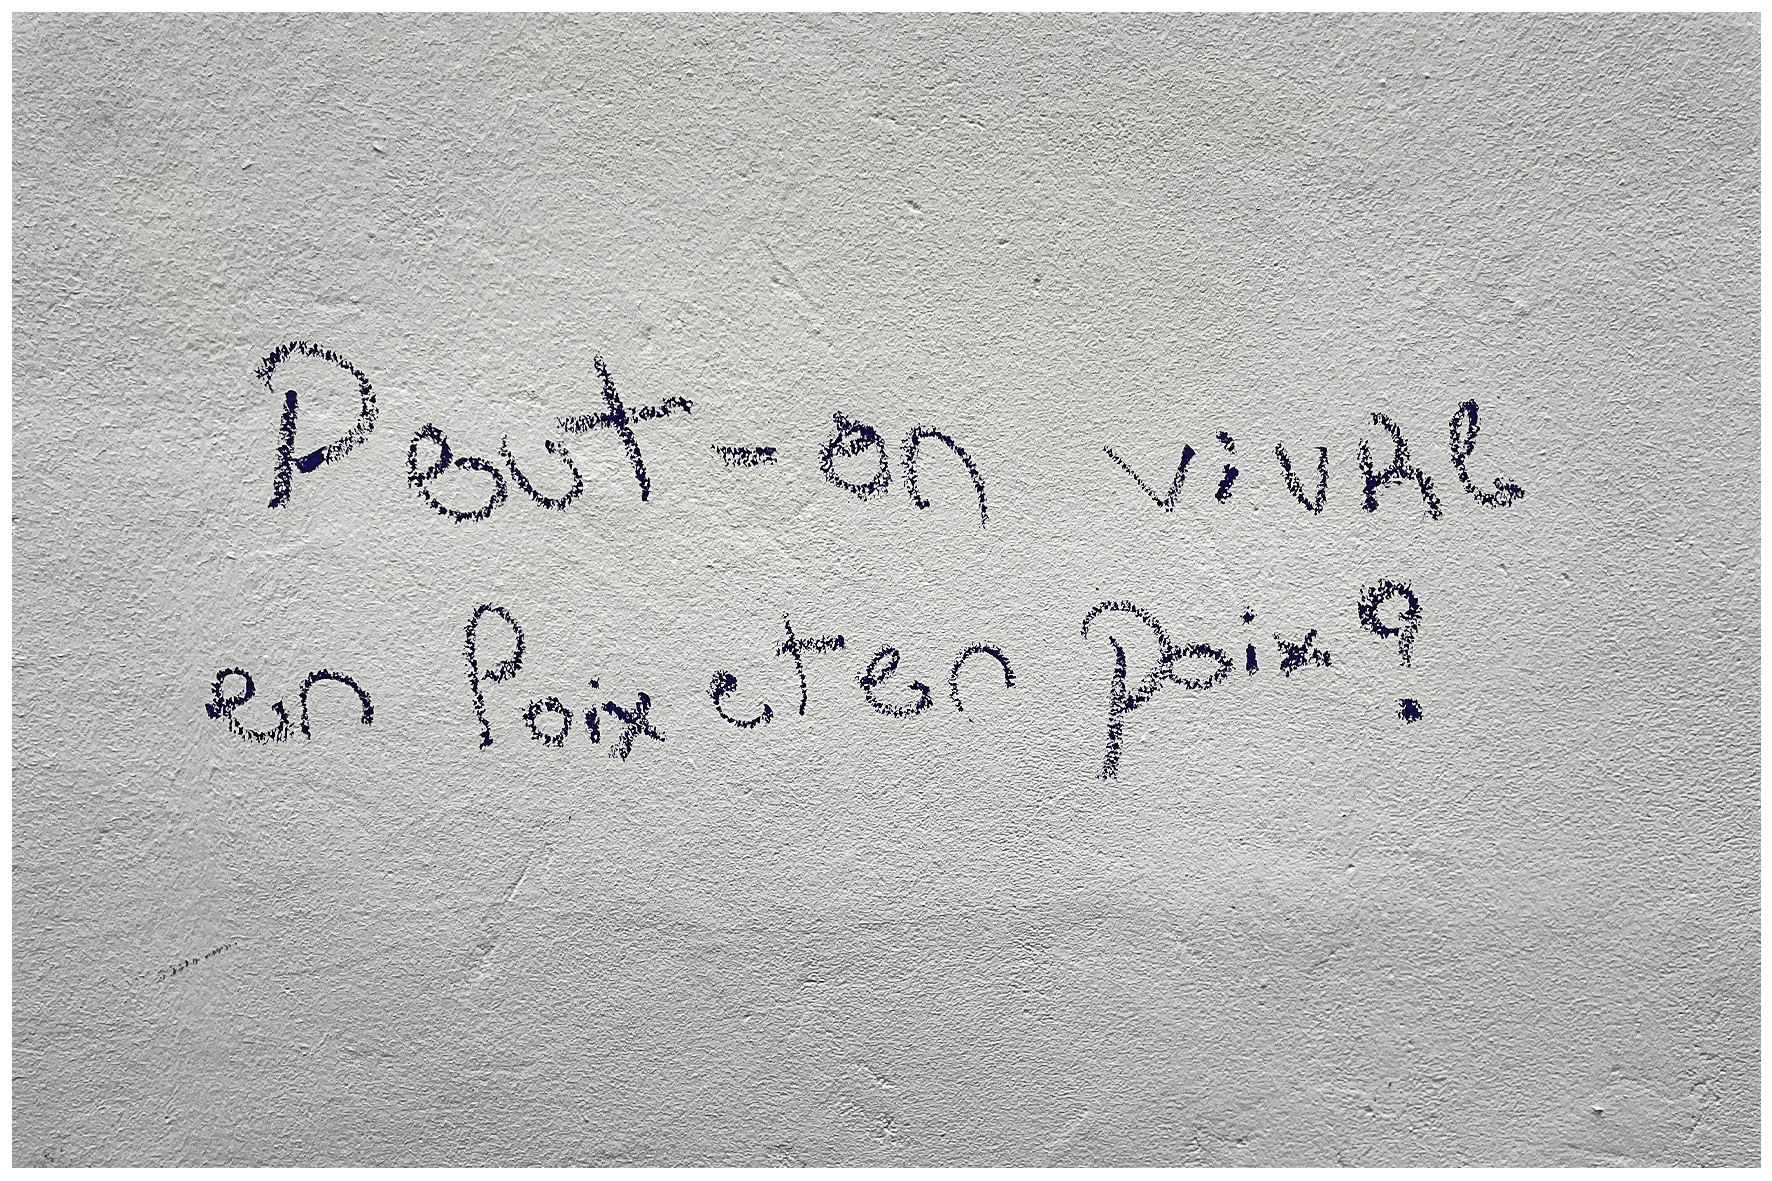 Peut-on vivRe
en Poix et en poix ?